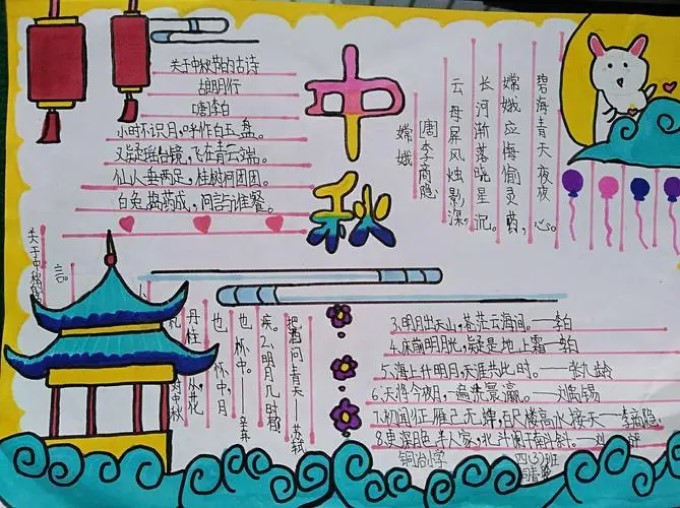 关于中秋节的古诗
古朗月行
唐李白
小时不识月，呼作白玉盘。
又疑瑶台镜，飞在青云端。
仙人垂两足，桂树何团团。
白兔捣药成，问言与谁餐。
中秋
嫦娥
唐李商隐
云母屏风烛影深，
长河渐落晓星沉。
嫦娥应悔偷灵药，
碧海青天夜夜心。
关于中秋
言。
丹桂
花
中秋
也
杯中月
也，杯中
疾。2.明月几时有
把酒问青天—苏轼
3.明月出天山，苍茫云海间。——李白
4.床前明月光，疑是地上霜—李白
5.海上升明月，天涯共此时。——张九龄
6.天将今夜月，一遍洗寰瀛。——刘禹锡
7.初闻征雁已无蝉，百尺楼高水接天—李商隐
8.更深月色半人家，北斗阑干南斗斜。—刘
铜冶小学
四(3)班